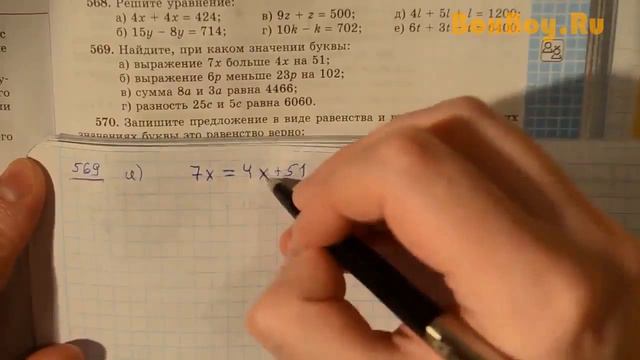 568. Решите уравнение: BotBoy.Ru
а) 4x + 4x = 424; в) 9z + z = 500; д) 4l + 5l + l = 1200;
б) 15y − 8y = 714; г) 10k − k = 702; е) 6t + 3t 6400.
569. Найдите, при каком значении буквы:
а) выражение 7x больше 4x на 51;
б) выражение 6p меньше 23p на 102;
в) сумма 8a и 3a равна 4466;
г) разность 25c и 5c равна 6060.
570. Запишите предложение в виде равенства и
значениях буквы это равенство верно:
569 а) 7x = 4x + 51